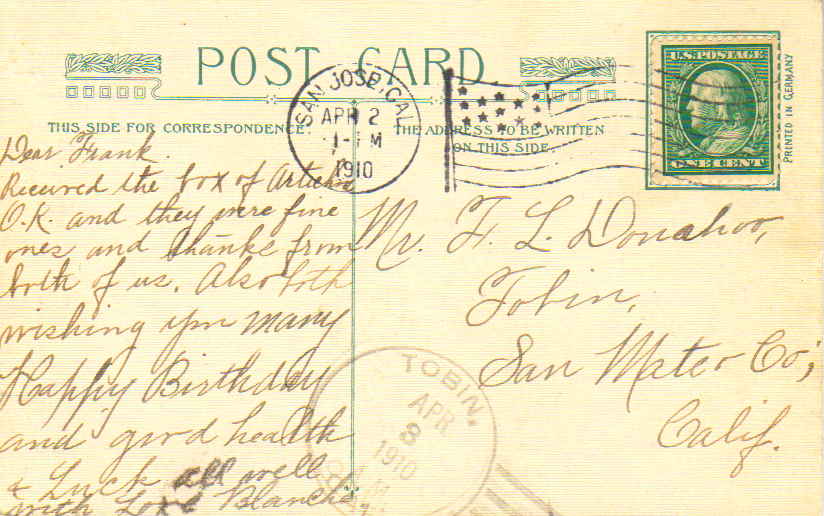 POST CARD
THIS SIDE FOR CORRESPONDENCE.
THE ADDRESS TO BE WRITTEN
ON THIS SIDE.
U.S. POSTAGE
ONE CENT
PRINTED IN GERMANY
SAN JOSE, CAL.
APR 2
1910
Dear Frank.
Received the box of
O.K. and they were fine
ones and thanks from
both of us. Also both
wishing you many
Happy Birthday
and good health
& Luck all well
with Love Blanche
Mr. F. L. Donahoo,
Tobin,
San Mateo Co;
Calif.
TOBIN.
APR
8
1910
A.M.